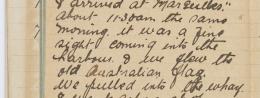 & arrived at Marseilles."
about 11.30am the same
7 morning. it was a fine
sight coming into the
harbour. & we flew the
old Australian flag.
We pulled into the whay.